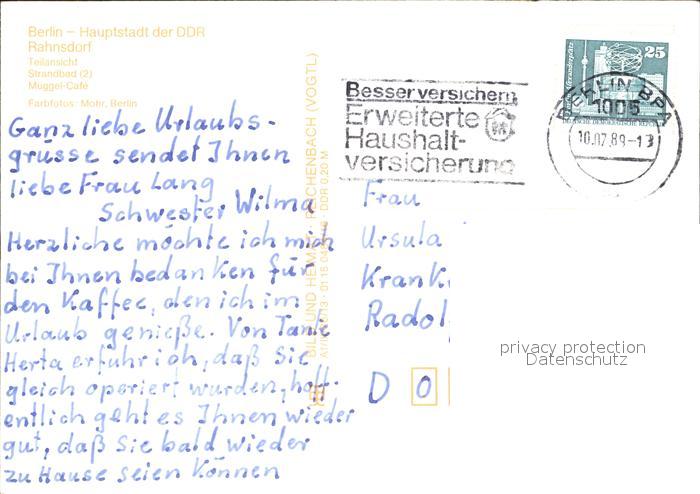 Berlin – Hauptstadt der DDR
Rahnsdorf
Teilansicht
Strandbad (2)
Müggel-Café
Farbfotos: Mohr, Berlin
Ganz liebe Urlaubs-
grüsse sendet Ihnen
liebe Frau Lang
Schwester Wilma
Herzliche möchte ich mich
bei Ihnen bedanken für
den Kaffee, den ich im
Urlaub genieße. Von Tante
Herta erfuhr ich, daß Sie
gleich operiert wurden, hoff-
entlich geht es Ihnen wieder
gut, daß Sie bald wieder
zu Hause seien können
BILD UND HEIMAT REICHENBACH (VOGTL)
DDR 0,20 M
Besser versichern
Erweiterte
Haushalt-
versicherung
25
BERLIN BPA
1005
10.07.89-13
Frau
Ursula
Krank
Radol
D 0
privacy protection
Datenschutz